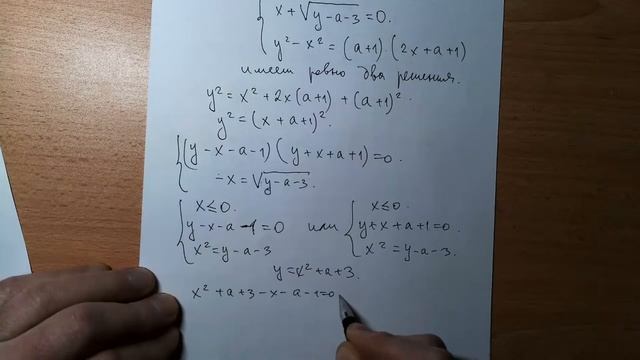 { x + √(y-a-3) = 0.
y² - x² = (a+1)·(2x+a+1)
имеет ровно два решения.
y² = x² + 2x(a+1) + (a+1)².
y² = (x+a+1)².
{ (y-x-a-1)(y+x+a+1) = 0.
-x = √(y-a-3).
{ x ≤ 0. y-x-a-1 = 0 x² = y-a-3 или { x ≤ 0. y+x+a+1 = 0. x² = y-a-3.
y = x² + a + 3.
x² + a + 3 - x - a - 1 = 0